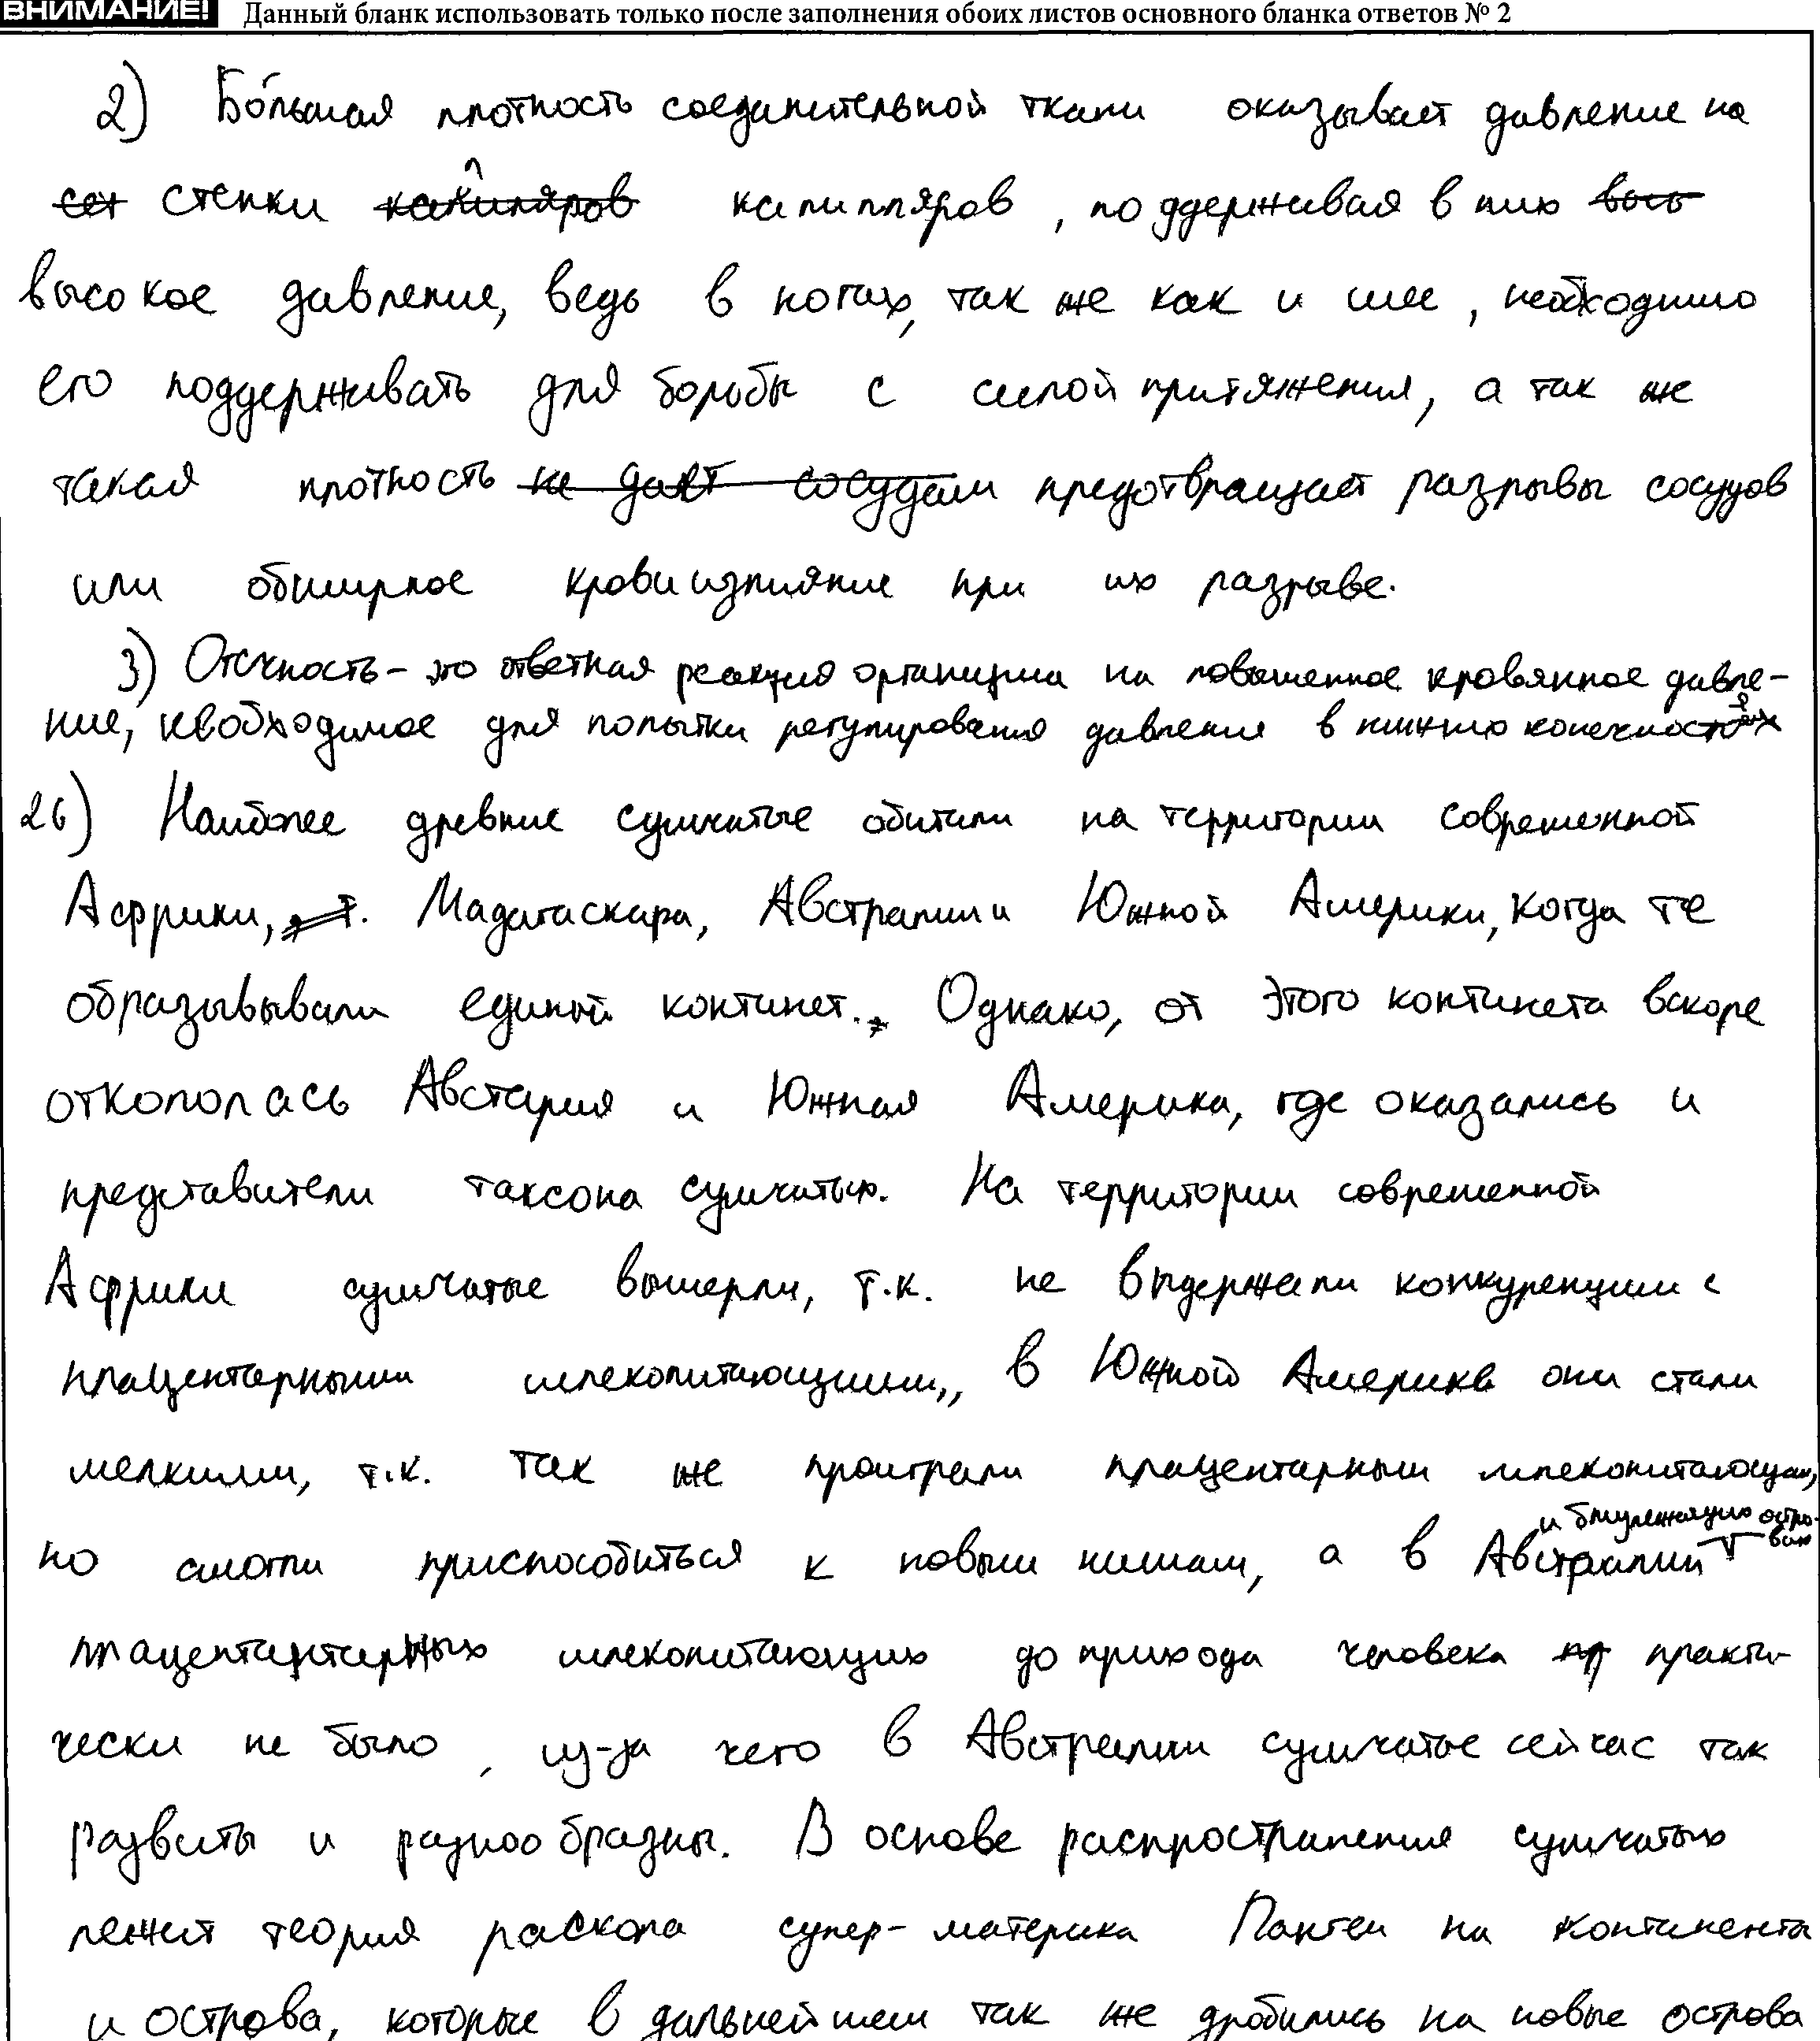 ВНИМАНИЕ! Данный бланк использовать только после заполнения обоих листов основного бланка ответов № 2
2) Бо́льшая плотность соединительной ткани оказывает давление на
сет стенки капиляров капилляров, поддерживая в них высо
высокое давление, ведь в ногах, так же как и шее, необходимо
его поддерживать для борьбы с силой притяжения, а так же
такая плотность не даёт сосудам предотвращает разрывы сосудов
или обширное кровиизлияние при их разрыве.
3) Отечность - это ответная реакция организма на повышенное кровянное давле-
ние, необходимое для попытки регулирования давления в нижних конечностях
26) Наиболее древние сумчатые обитали на территории современной
Африки, Мадагаскара, Австралии и Южной Америки, когда те
образывывали единый континет. Однако, от этого континета вскоре
откололась Австария и Южная Америка, где оказались и
представители таксона сумчатых. На территории современной
Африки сумчатые вымерли, т.к. не выдержали конкуренции с
плацентарными млекопитающими, в Южной Америке они стали
мелкими, т.к. так же проиграли плацентарным млекопитающим,
но смогли приспособиться к новым нишам, а в Австралии и близлежащих остро-
вах
плацентантарных млекопитающих до прихода человека пр практи-
чески не было, из-за чего в Австралии сумчатые сейчас так
развиты и разнообразны. В основе распространения сумчатых
лежит теория раскола супер-материка Пангеи на континента
и острова, которые в дальнейшем так же дробились на новые острова